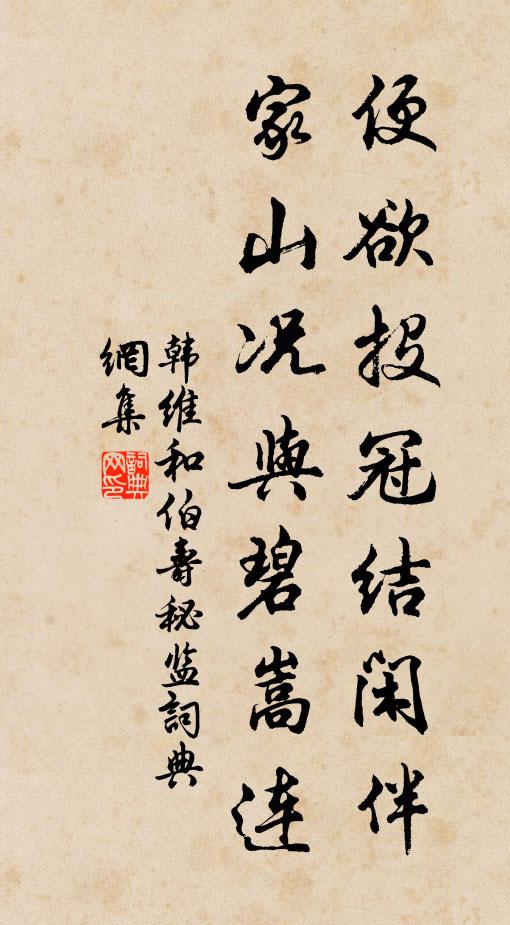 便欲投冠结闲伴
家山况與碧嵩连
韩维和伯壽秘监詞典
網集
詞典網印